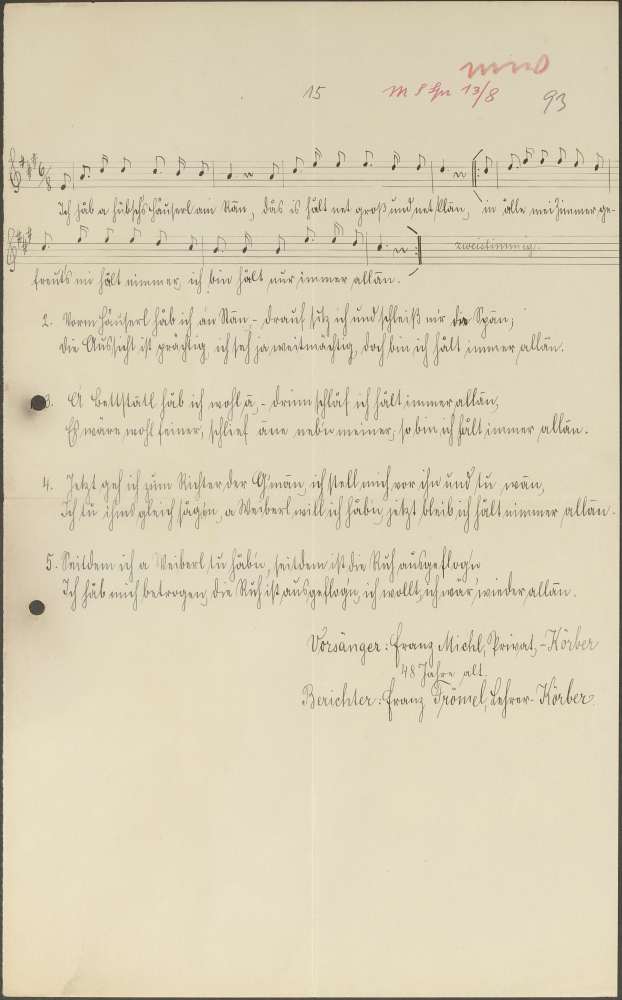 15 93
13/8
Ich håb a hübschs Häuserl am Ran, dås is hålt net groß und net klan, in alle mei Zimmer ge-
freuts mi hålt nimmer, ich bin hålt nur immer allan.
zweistimmig.
2. Vorm Häuserl håb ich an Stan, - drauf sitz ich und schleiß mir die Span;
die Aussicht ist prächtig, ich seh ja weitmächtig, doch bin ich hålt immer allan.
3. A Bettstattl håb ich wohl a, - drinn schlåf ich hålt immer allan,
Es wäre wohl feiner, schlief ane neb'n meiner, so bin ich hålt immer allan.
4. Jetzt geh ich zum Richter der G'man, ich stell mich vor ihn und tu wan,
Ich tu ihms gleich sågn, a Weiberl will ich håbn, jetzt bleib ich hålt nimmer allan.
5. Seitdem ich a Weiberl tu håb'n, seitdem ist die Ruh ausgeflog'n
Ich håb mich betrogen, die Ruh ist ausgeflogn, ich wollt, ich wär' wieder allan.
Vorsänger: Franz Michl, Privat, - Körber
48 Jahre alt.
Berichter: Franz Trömel, Lehrer - Körber.